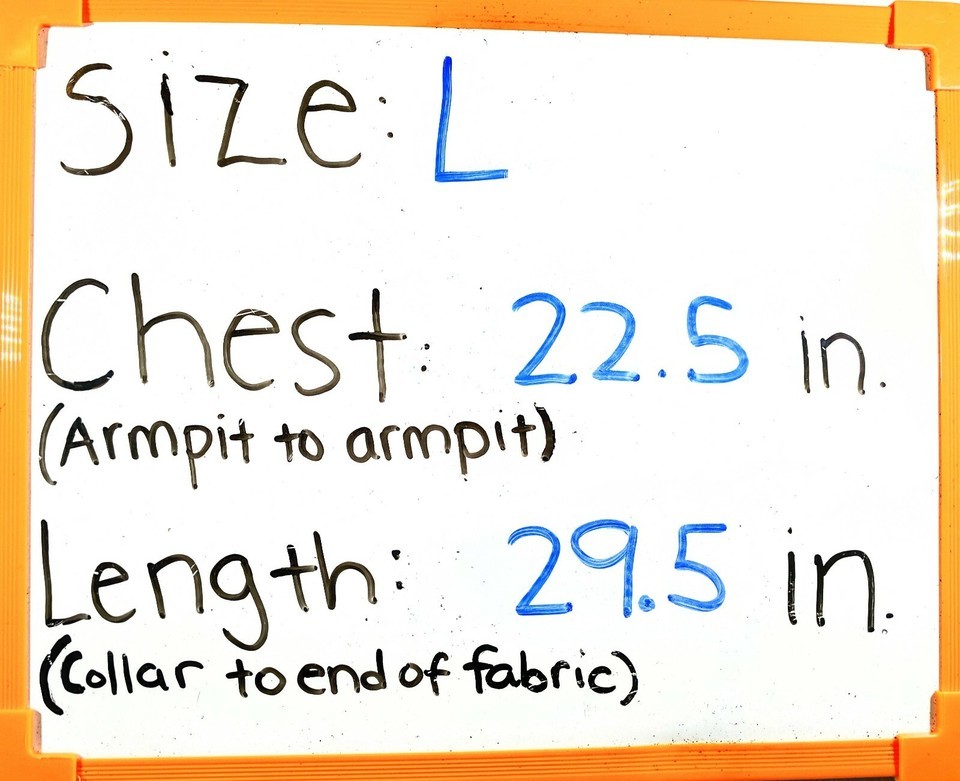 Size: L
Chest: 22.5 in.
(Armpit to armpit)
Length: 29.5 in.
(Collar to end of fabric)